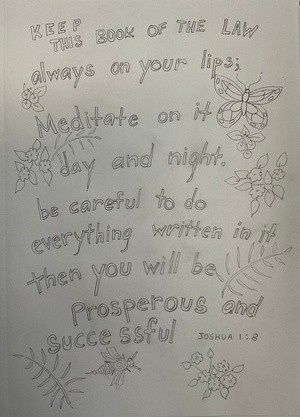 KEEP
THIS BOOK OF THE LAW
always on your lips;
Meditate on it
day and night.
be careful to do
everything written in it
then you will be
Prosperous and
successful
JOSHUA 1:8